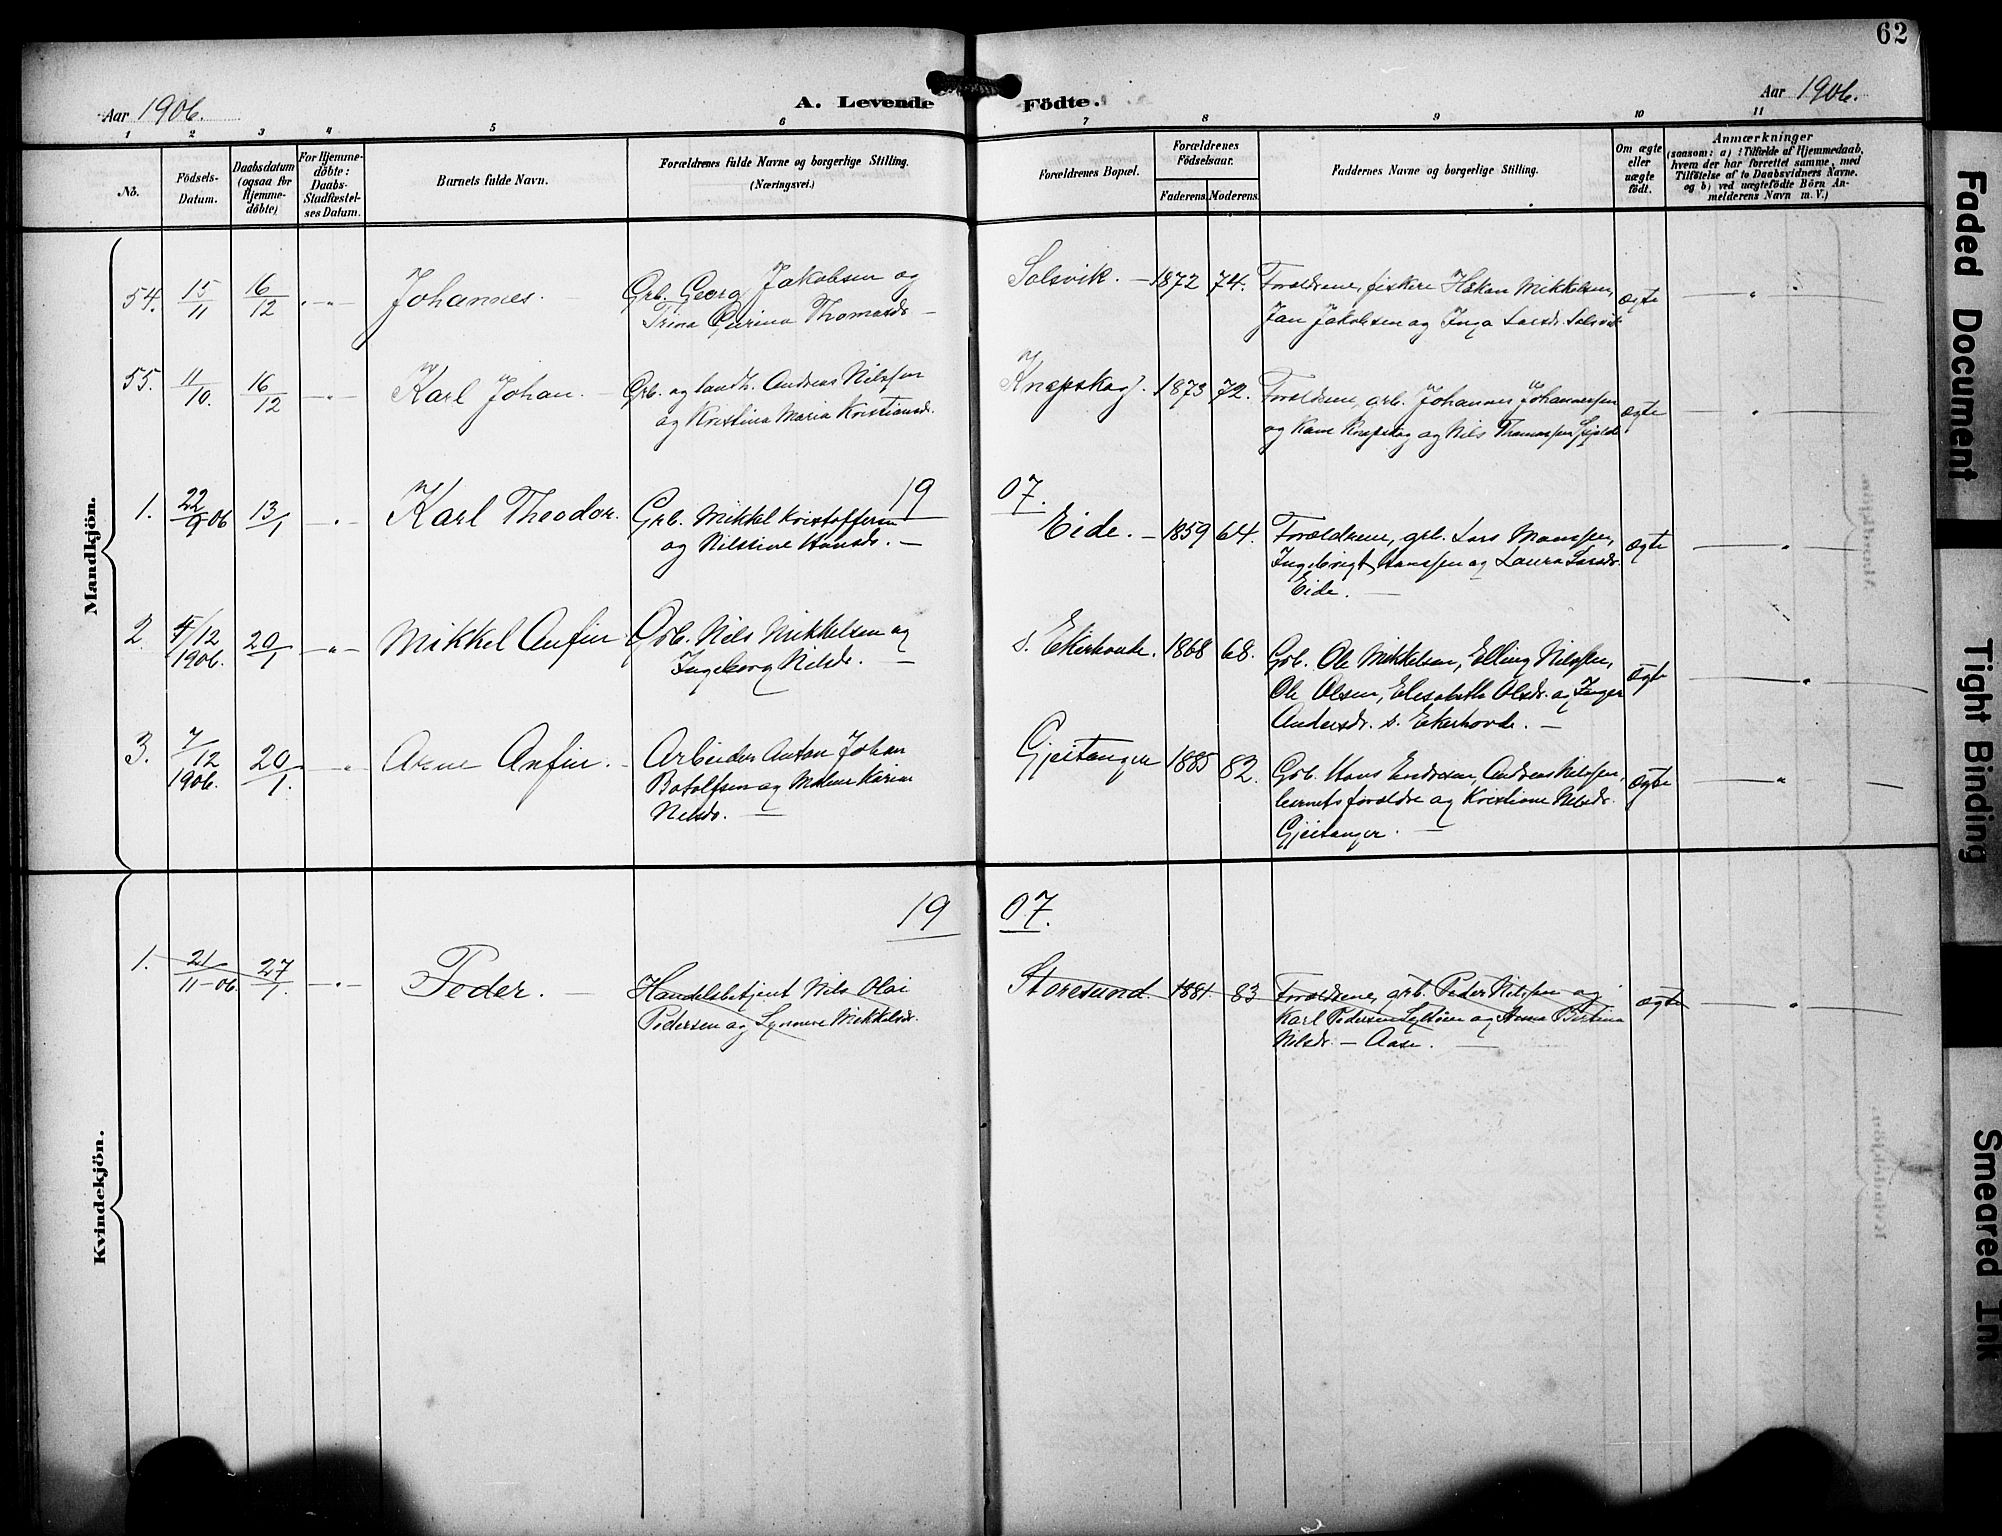 62
Aar 1906.
A. Levende Födte.
Aar 1906.
1 2 3 4 5 6 7 8 9 10 11
No.
Födsels-Datum.
Daabsdatum (ogsaa for Hjemme-döbte)
For Hjemme-döbte: Daabs-Stadfæstel-ses Datum.
Barnets fulde Navn.
Forældrenes fulde Navne og borgerlige Stilling. (Næringsvei.)
Forældrenes Bopæl.
Forældrenes Födselsaar.
Faderens. Moderens.
Faddernes Navne og borgerlige Stilling.
Om ægte eller uægte födt.
Anmærkninger
(saasom: a) i Tilfælde af Hjemmedaab, hvem der har forrettet samme, med Tilföielse af to Daabsvidners Navne. og b) ved uægtefödte Börn An-melderens Navn m. V.)
Mandkjön.
54. 15/11 16/12 -"- Johannes. — Grb. Georg Jakobsen og Solsvik. — 1872 74. Forældrene, fisker Håkon Mikkelsen, ægte — " —
Trina Gurina Thomasdr. — Jan Jakobsen og Inga Larsdr. Solsvik
55. 11/10. 16/12 -"- Karl Johan. — Grb. og landh. Andreas Nilssen Knapskog. 1873 72. Forældrene, grb. Johannes Johannessen ægte — " —
og Kristina Maria Kristiansd. og Kone Knapskog og Nils Thomassen
19 07.
1. 22/9 06 13/1 -"- Karl Theodor. Grb. Mikkel Kristoffersen Eide. — 1859 64. Forældrene, grb. Lars Monssen, ægte — " —
og Nilsine Hansdr. — Ingebrigt Hanssen og Laura Larsdr.
Eide. —
2 4/12 1906. 20/1 -"- Mikkel Anfin Grb. Nils Mikkelsen og s. Ekerhovde. 1868 68. Grb. Ole Mikkelsen, Elling Nilssen, ægte — " —
Ingeborg Nilsdr. — Ole Olsen, Elisabeth Olsdr. og Inger
Andersdr. s. Ekerhovde. —
3. 7/12 1906. 20/1. -"- Arne Anfin. — Arbeider Anton Johan Gjeitanger 1885 82. Grb. Hans Endresen, Andreas Nilssen, ægte — " —
Botolfsen og Malene Karine barnets forældre og Kristiane Nilsdr.
Nilsdr. — Gjeitanger. —
Kvindekjön.
19 07.
1. 21/11-06. 27/1. -"- Peder. — Handelsbetjent Nils Olai Storesund. 1881. 83 Forældrene, grb. Peder Nilssen og ægte — " —
Pedersen og Synneve Mikkelsdr. Karl Pedersen og Anna Bertina
Nilsdr. — Aase. —
Faded Document
Tight Binding
Smeared Ink